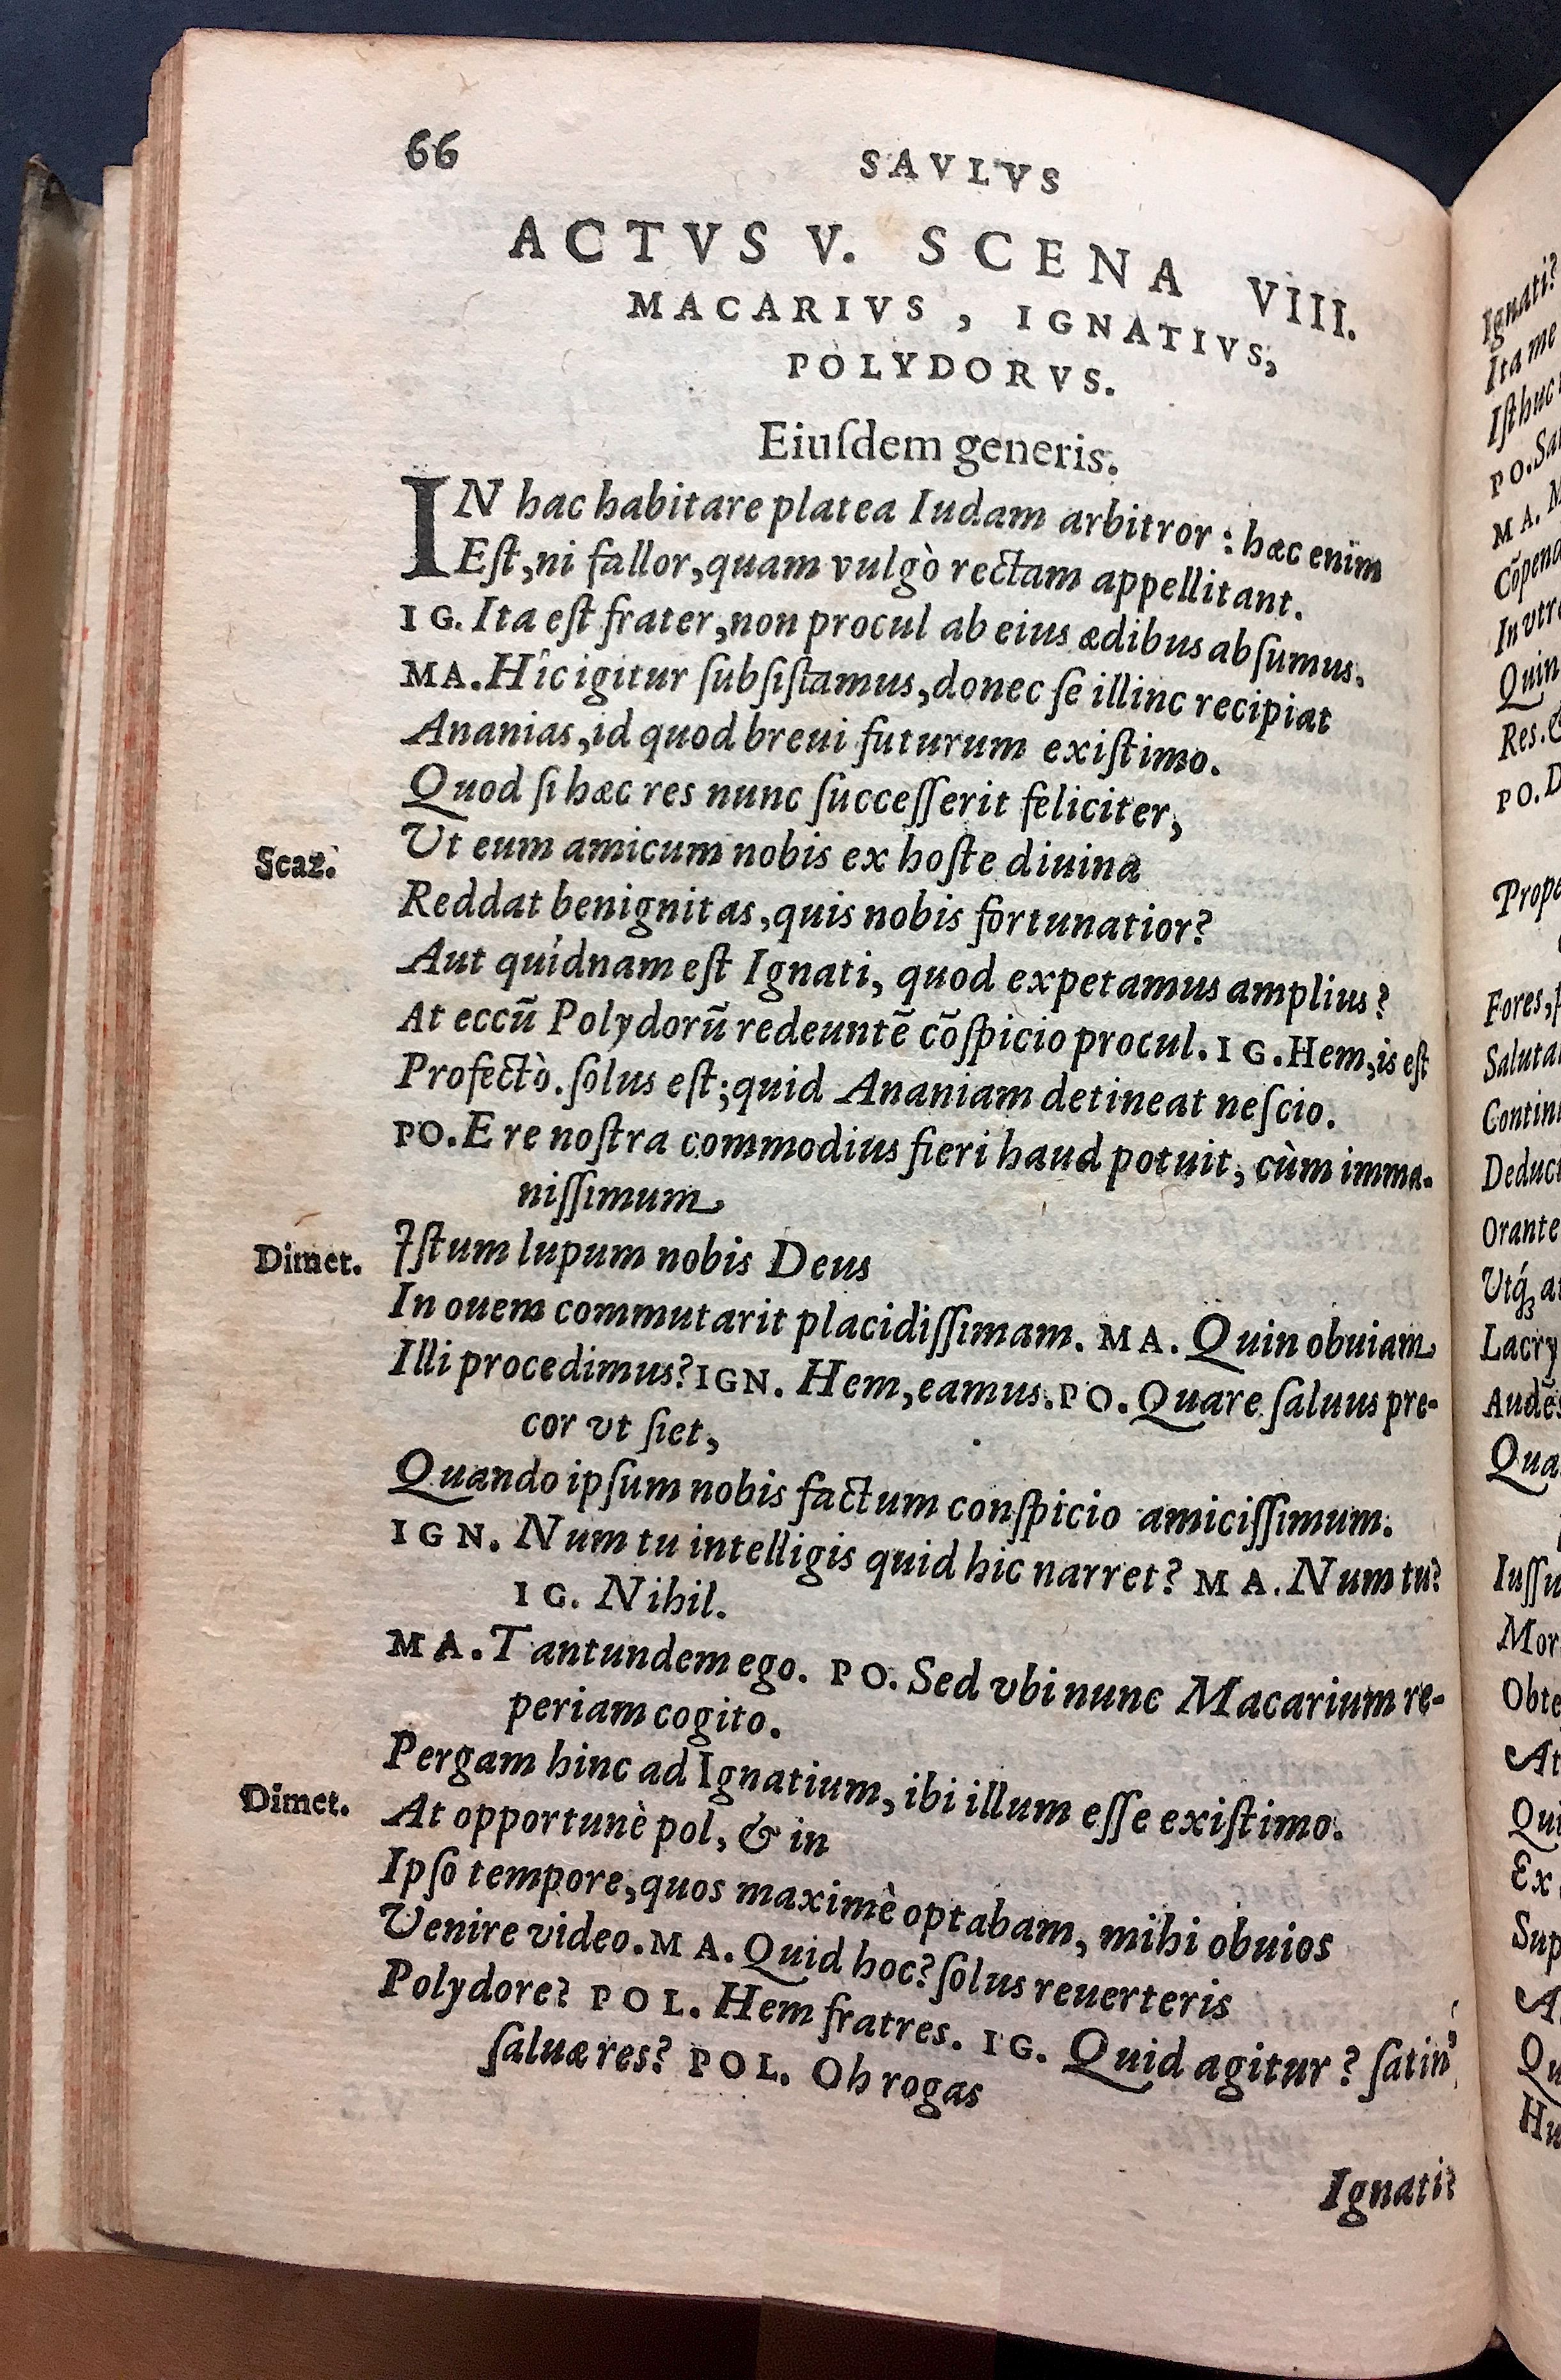 66
SAVLVS
ACTVS V. SCENA VIII.
MACARIVS, IGNATIVS,
POLYDORVS.
Eiuſdem generis.
IN hac habitare platea Iudam arbitror : hæc enim
Eſt, ni fallor, quam vulgò rectam appellitant.
IG. Ita eſt frater, non procul ab eius ædibus abſumus.
MA. Hîc igitur ſubſiſtamus, donec ſe illinc recipiat
Ananias, id quod breui futurum exiſtimo.
Quod ſi hæc res nunc ſucceſſerit feliciter,
Scaz. Ut eum amicum nobis ex hoſte diuina
Reddat benignitas, quis nobis fortunatior?
Aut quidnam eſt Ignati, quod expetamus amplius?
At eccũ Polydorũ redeuntẽ cõſpicio procul. IG. Hem, is eſt
Profectò. ſolus eſt; quid Ananiam detineat neſcio.
PO. E re noſtra commodius fieri haud potuit, cùm imma-
niſſimum
Dimet. Iſtum lupum nobis Deus
In ouem commutarit placidiſſimam. MA. Quin obuiam
Illi procedimus? IGN. Hem, eamus. PO. Quare ſaluus pre-
cor vt ſiet,
Quando ipſum nobis factum conſpicio amiciſſimum.
IGN. Num tu intelligis quid hic narret? MA. Num tu?
IG. Nihil.
MA. Tantundem ego. PO. Sed vbi nunc Macarium re-
periam cogito.
Pergam hinc ad Ignatium, ibi illum eſſe exiſtimo.
Dimet. At opportunè pol, & in
Ipſo tempore, quos maximè optabam, mihi obuios
Venire video. MA. Quid hoc? ſolus reuerteris
Polydore? POL. Hem fratres. IG. Quid agitur? ſatin'
ſaluæ res? POL. Oh rogas
Ignati?
Ignati?
Ita me
Iſthuc
PO. 
MA. 
Quin
Res. 
PO. 
Fores,
Orante
Lacry
Audẽs
Qua
Mor
Obte
At
Qui
Ex
Sup
Qu
Hu